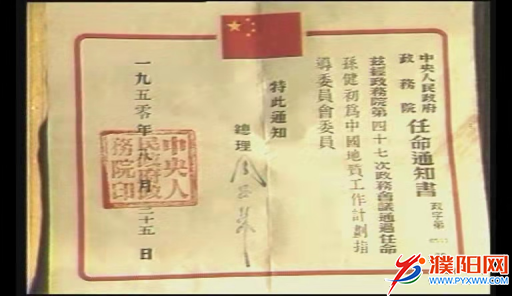 中央人民政府
政務院
任命通知書
政字第
茲經政務院第四十七次政務會議通過任命
孫健初爲中國地質工作計劃指
導委員會委員
特此通知
總理
一九五零年 月二十五日
中央人
民政府政
務院印
濮阳网
WWW.PYXWW.COM